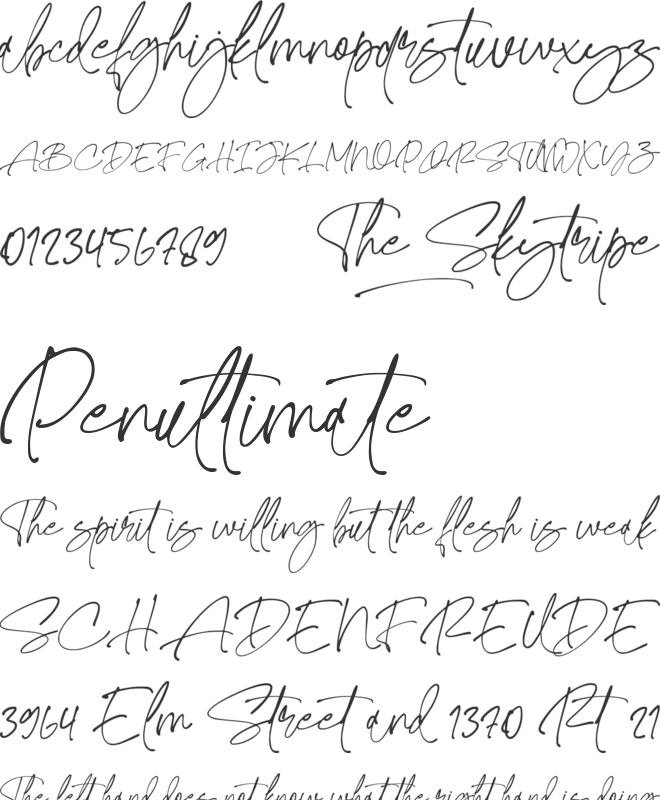 abcdefghijklmnopqrstuvwxyz
ABCDEFGHIJKLMNOPQRSTUVWXYZ
0123456789
The Skytripe
Penultimate
The spirit is willing but the flesh is weak
SCHADENFREUDE
3964 Elm Street and 1370 Rt 21
The left hand does not know what the right hand is doing